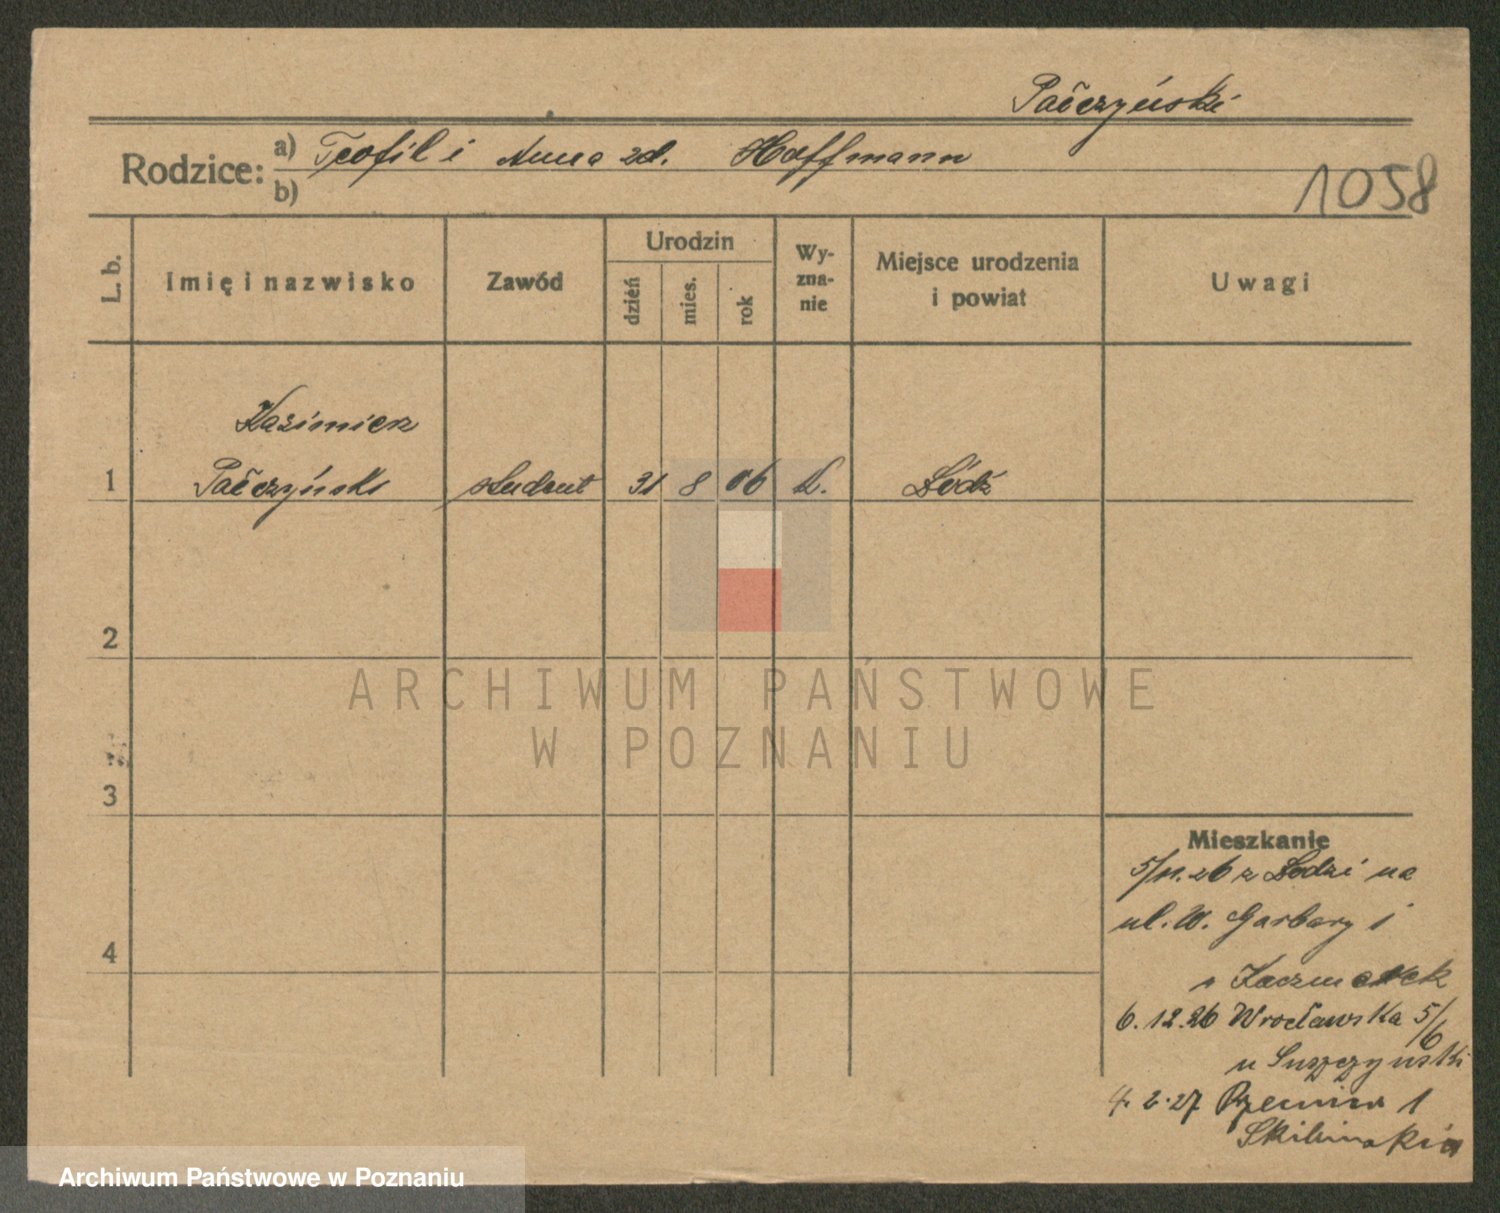 Pačczyński
Rodzice: a) Teofil i Anna zd. Hoffmann
b)
1058
L. b.
Imię i nazwisko
Zawód
Urodzin
dzień
mies.
rok
Wy-
zna-
nie
Miejsce urodzenia
i powiat
Uwagi
Kazimierz
1 Pačczyński student 31 8 06 k. Łódź
2
3
4
Mieszkanie
5/11.26 z Łodzi na
ul. W. Garbary 1
Kaczmarek
6.12.26 Wrocławska 5/6
u Suszczyński
4.2.27 1
ARCHIWUM PAŃSTWOWE
W POZNANIU
Archiwum Państwowe w Poznaniu